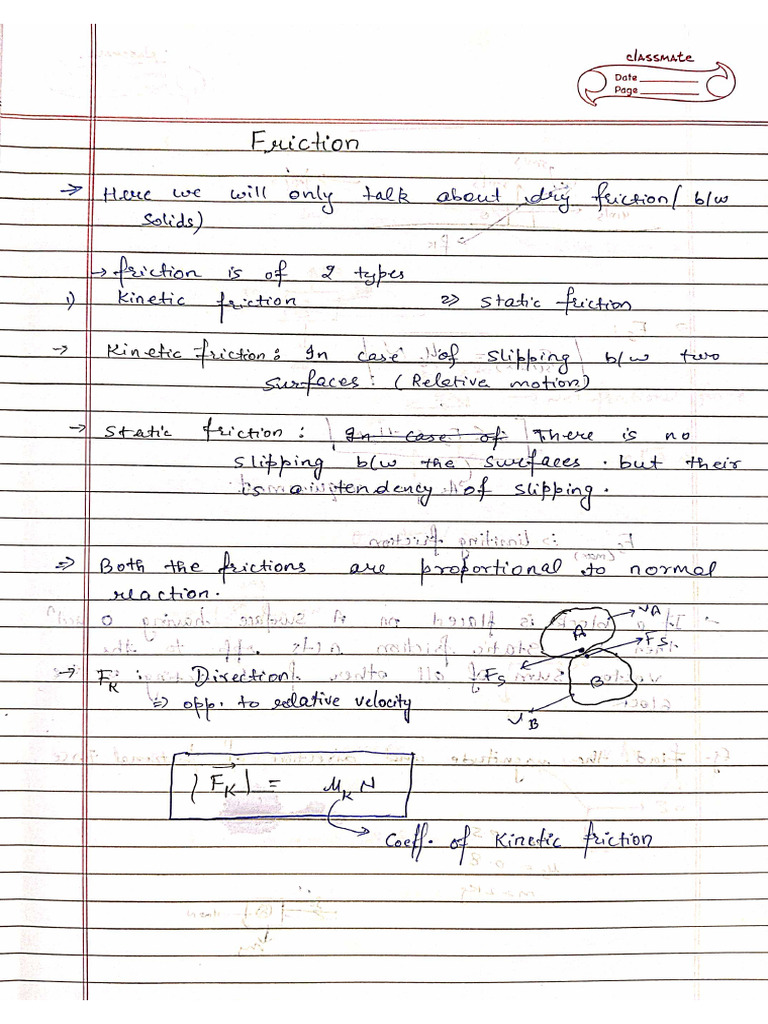 classmate
Date
Page
Friction
→ Here we will only talk about dry friction( b/w
solids)
→ friction is of 2 types
1) Kinetic friction 2) Static friction
→ Kinetic friction: In case of slipping b/w two
surfaces: (Relative motion)
→ Static friction: In case of There is no
slipping b/w the surfaces. but their
is a tendency of slipping.
⇒ Both the frictions are proportional to normal
reaction.
VA
A
FS
→ FK : Direction: FS B
⇒ opp. to relative velocity
VB
|FK| = μK N
Coeff. of Kinetic friction